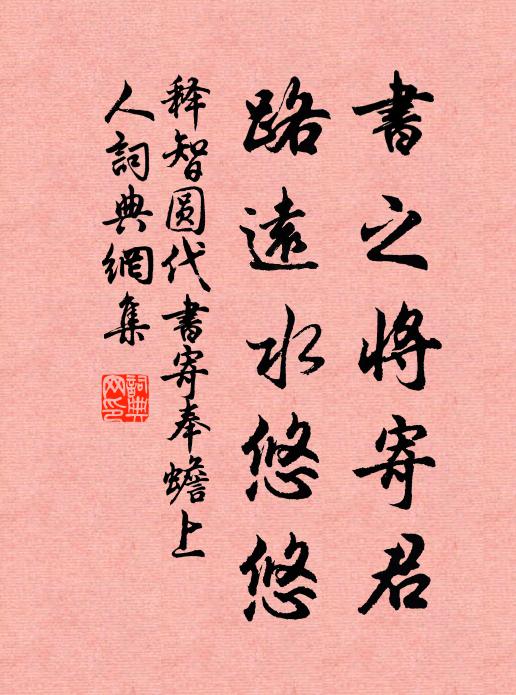 書之將寄君
路遠水悠悠
释智圓代書寄奉蟾上
人詞典網集
詞典網印